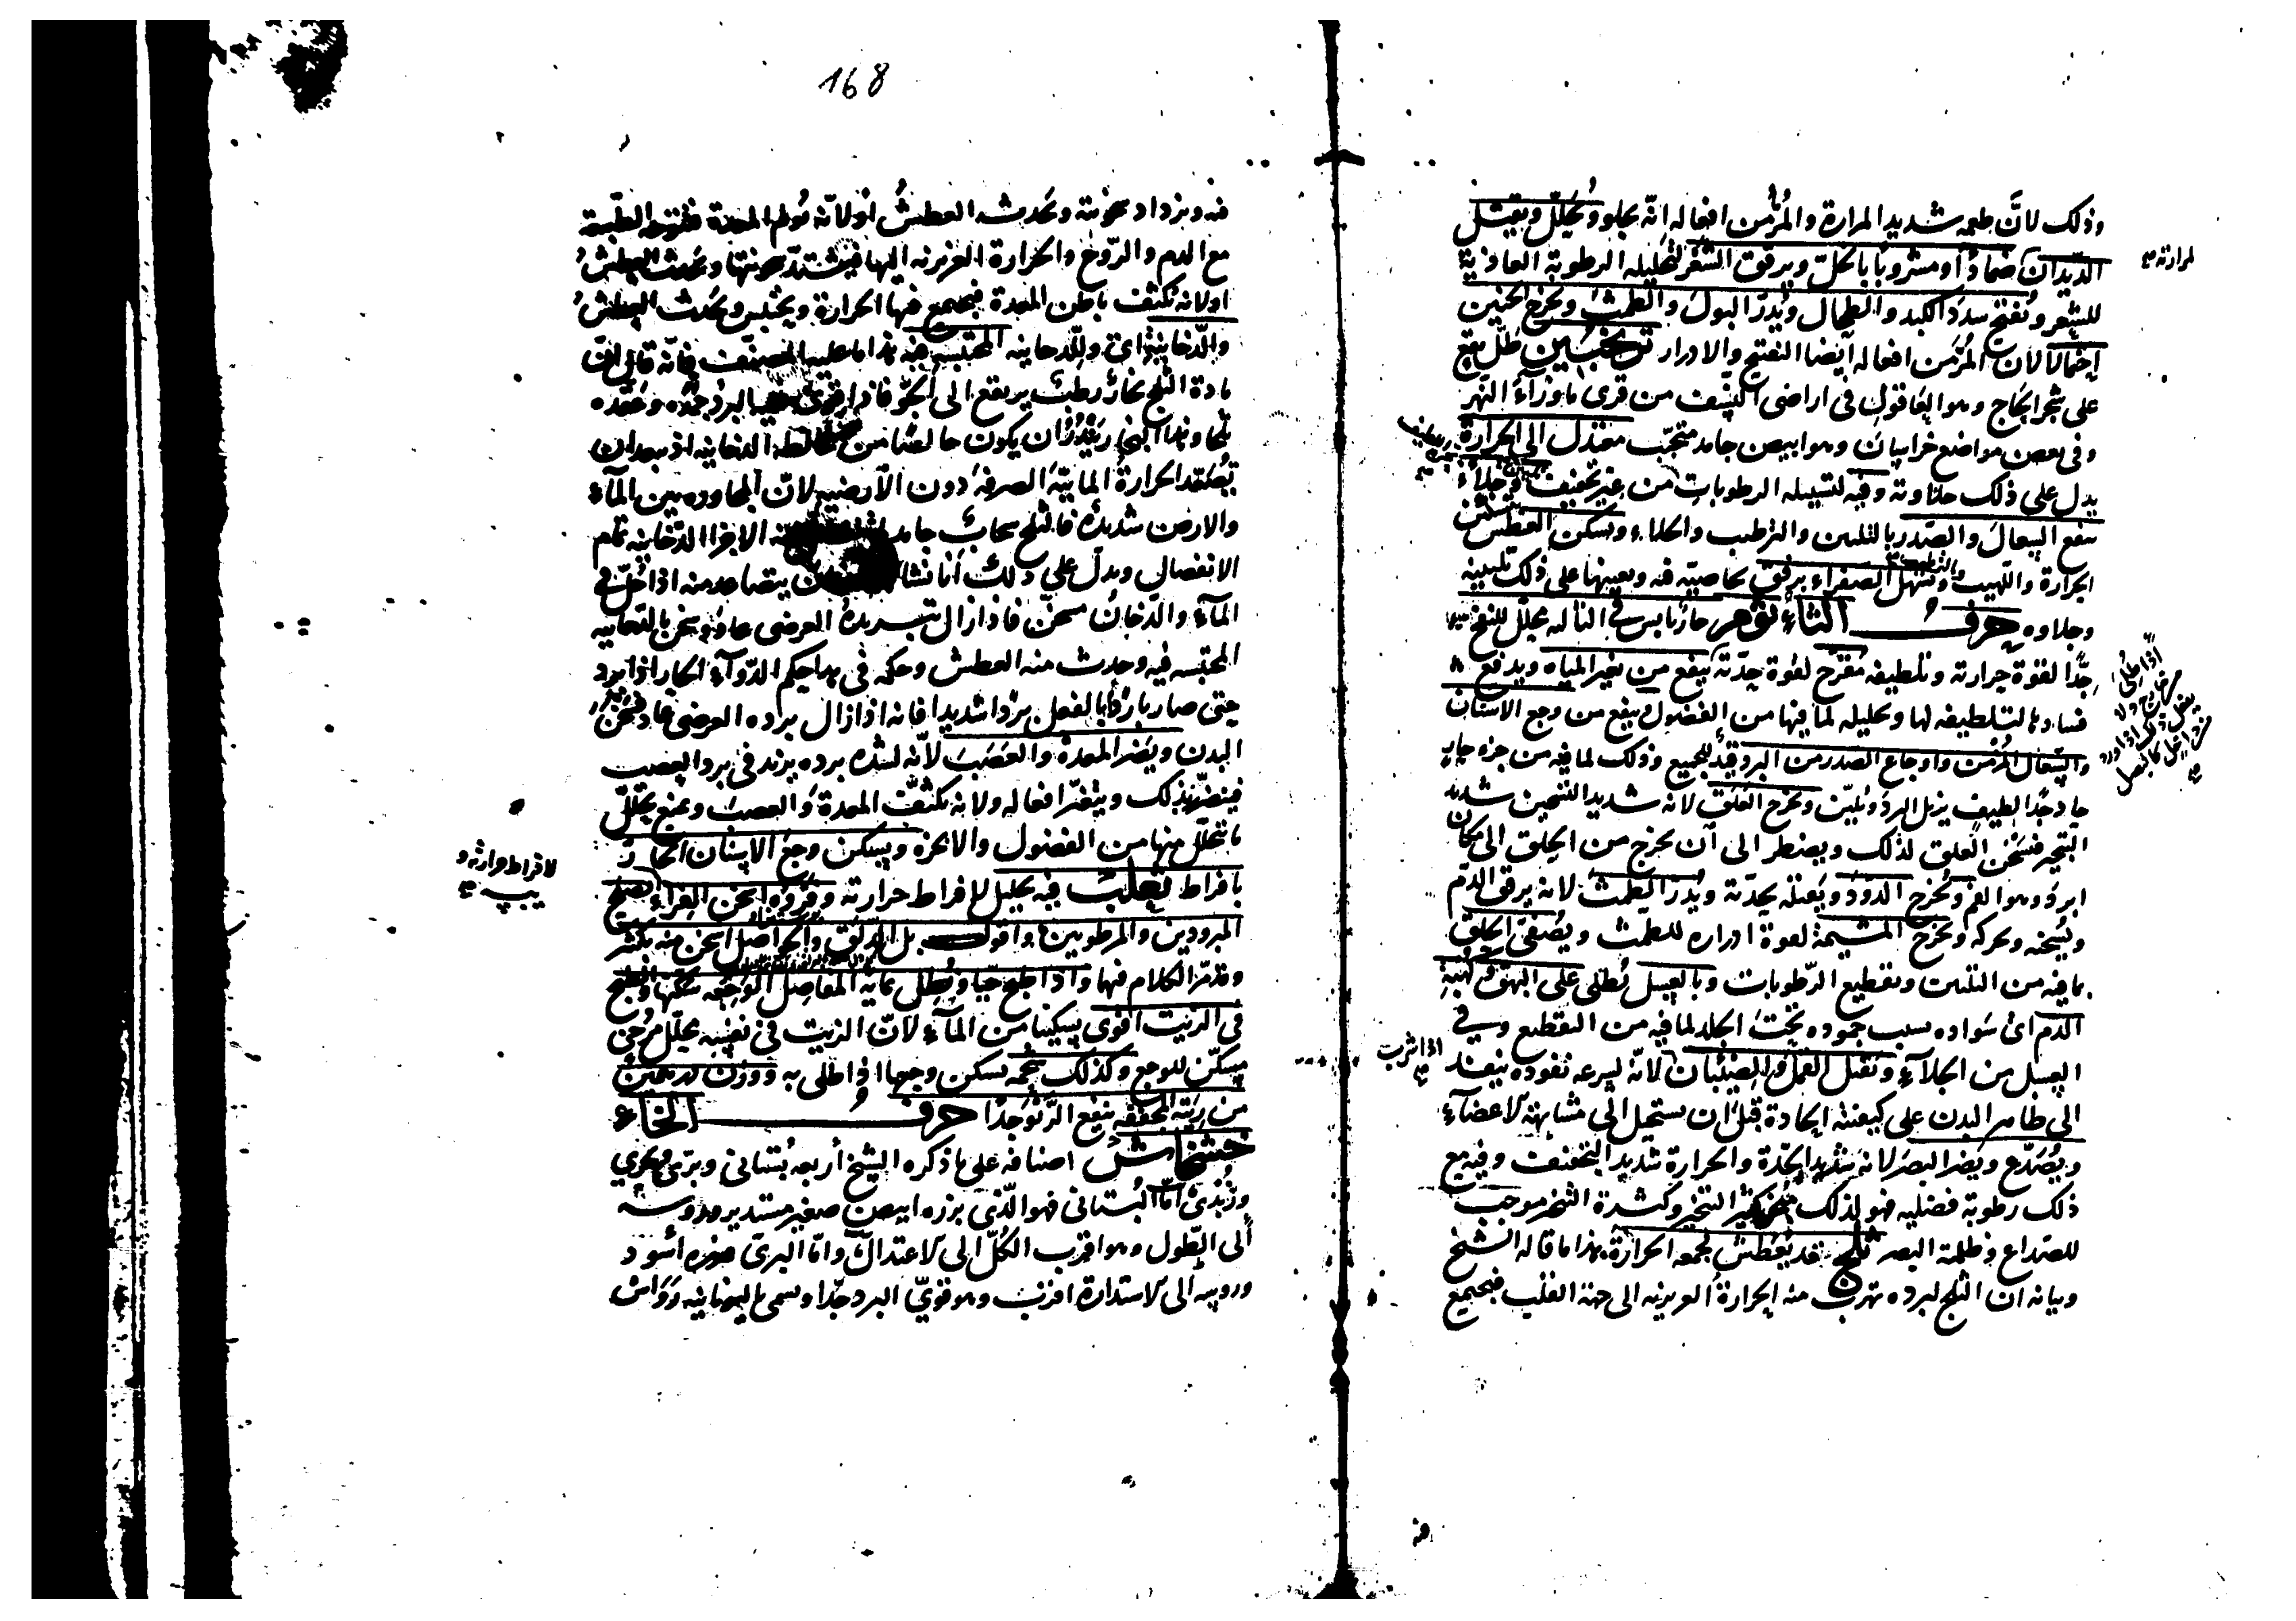 وذلك لانّ طعمه شديد المرارة والمُرّ من افعاله انّه يجلو ويُحلّل ويقتل
لمرارته صح
الدّيدان ضمادًا ومشروبا بالخلّ ويرقق الشعر لتحليله الرطوبة الغاذية
للشعر ويُفتّح سدد الكبد والطحال ويُدرّ البول والطمث ويخرج الجنين
احتمالا لان المُرّ من افعاله ايضا التفتيح والادرار ترنجبين طلّ يقع
على شجر الحاج وهو العاقول في اراضى النسف من قرى ماوراء النهر
وفى بعض مواضع خراسان وهو ابيض جامد متحبّب معتدل الى الحرارة
يدل على ذلك حلاوته وفيه لتسييله الرطوبات من غير تجفيف وجلاء
ينفع السعال والصدر بالتليين والترطيب والجلاء ويسكن العطش
الحرارة واللهيب ويُسهل الصفراء برفق بخاصيّه فيه ويعينها على ذلك تليينه
وجلاوه حرف الثاء ثوم حارّ يابس فى الثالثه محلّل للنفخ
جدّا لقوة حرارته وتلطيفه مُقرّح لقوة حدّته ينفع من تغير المياه ويدفع
فسادها لتلطيفه لها وتحليله لما فيها من الفضول وينفع من وجع الاسنان
والسعال المُزمن واوجاع الصدر من البرد للجميع وذلك لما فيه من جزء حارّ
حادّ جدّا لطيف يزيل البرد ويُليّن ويخرج العَلَق لانه شديد التسخين شديد
التبخير فيسخن العلق لذلك ويضطر الى ان يخرج من الحلق الى مكان
ابرد وهو الفم ويُخرج الدود ويقتله بحدّته ويُدرّ الطمث لانه يرقق الدّم
ويُسخنه ويحركه ويخرج المشيمة لقوة ادراره للطمث ويُصفّى الحلق
بما فيه من التليين وتقطيع الرّطوبات وبالعسل يُطلى على البهق
الدم اى سواده بسبب جموده تحت الجلد لما فيه من التقطيع وفى
اذا شرب صح
العسل من الجلاء ويقتل القمل والصئبان لانّه لسرعه نفوذه ينفذ
الى ظاهر البدن على كيفيته الحادة قبل ان يستحيل الى مشابهة الاعضاء
ويُصدّع ويضر البصر لانه شديد الحدّة والحرارة شديد التجفيف وفيه مع
ذلك رطوبة فضليه فهو لذلك كثير التبخير وكثرة التبخر موجب
للصداع وظلمة البصر ثلج قد يُعطش لجمعه الحرارة هذا ما قاله الشيخ
وبيانه ان الثلج لبرده تهرب منه الحرارة الغريزيه الى جهة القلب فيجتمع
فيه
168
فيه ويزداد سخونته ويحدث العطش او لانّه يُولم المعدة فتتوجه الطبيعة
مع الدم والرّوح والحرارة الغريزيه اليها فيشتدّ سخونتها ويحدث العطش
اولانه يكثف باطن المعدة فيجتمع فيها الحرارة ويحتبس ويحدث العطش
والدّخانية اى وللدخانيه المحتبسه فيه هذا المصنّف فانّه قال انّ
مادة الثلج بخارٌ رطب يرتفع الى الجوّ فاذا قوى عليه البرد جمّده وعقّده
ثلجا وهذا البخار يندُر ان يكون خالصا من مخالطه الدخانيه اذ يبعد ان
تُصعّد الحرارة المائيّة الصرفه دون الارضيه لانّ المجاوره بين الماء
والارض شديدة فالثلج سحاب جامد الاجزا الدّخانيه تمام
الانفصال ويدلّ على ذلك يتصاعد منه اذا حُلّ فى
الماء والدخان مسخن فاذا زال تبريدهُ العرضى عاد وسخن بالدخانيه
المحتبسه فيه وحدث منه العطش وحكمه فى هذا حكم الدواء الحار اذا برد
حتى صار باردا بالفعل بردا شديدا فانه اذا زال برده العرضى عاد فسخن
البدن ويَضر المعدة والعصب لانّه لشده برده يزيد فى برد العصب
فيتضرّ بذلك ويتغيّر افعاله ولانه يُكثّف المعدة والعصب ويمنع تحلّل
ما يتحلّل منها من الفضول والابخره ويسكن وجع الاسنان الحارّ
لافراط حرارته و
يبسه صح
بافراط ثعلب فيه تحليل لافراط حرارته وفروه اسخن الفراء يصلح
المبرودين والمرطوبين واقول بل الدلق والحواصل اسخن منه بكثير
وقد مرّ الكلام فيها واذا طبخ حيّا وطُلى بمائه المفاصل الوجعه سكنها وطبخ
فى الزيت اقوى تسكينا من الماء لانّ الزيت فى نفسه محلّل مُرخى
مسكّن للوجع وكذلك شحمه يسكن وجعها اذا طلى به ووزن درهمين
من رئته المجففه ينفع الرّبو جدّا حرف الخاء
خشخاش اصنافه على ما ذكره الشيخ أربعه بُستانى وبرّى وبحرى
وزُبدى امّا البُستانى فهو الذى بزره ابيض صغير مستدير وروسه
الى الطول وهو اقرب الكُلّ الى الاعتدال وامّا البرىّ فبزره أسود
وروسه الى الاستدارة اقرب وهو قوىّ البرد جدّا ويسمى باليونانيه رواس